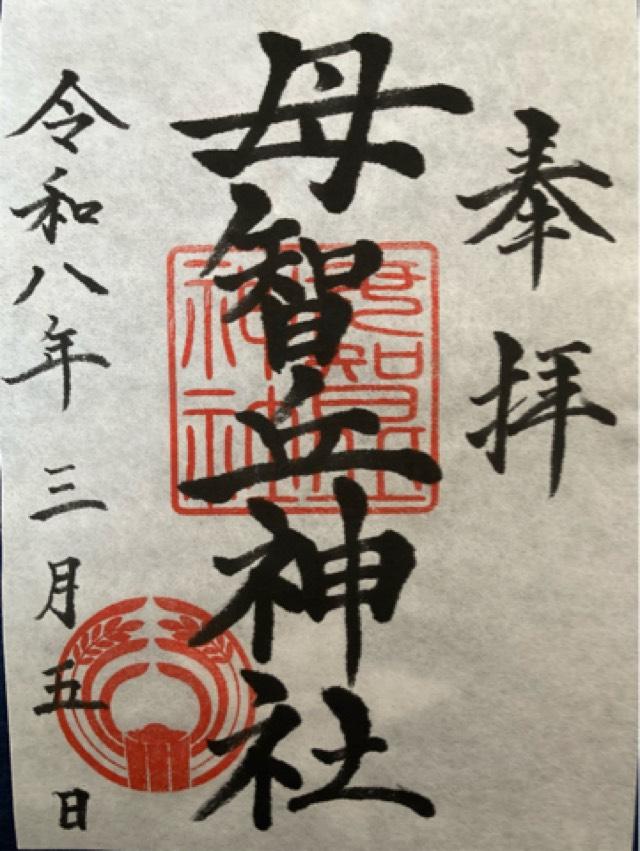 奉拝
母智丘神社
母智丘神社
令和八年三月五日